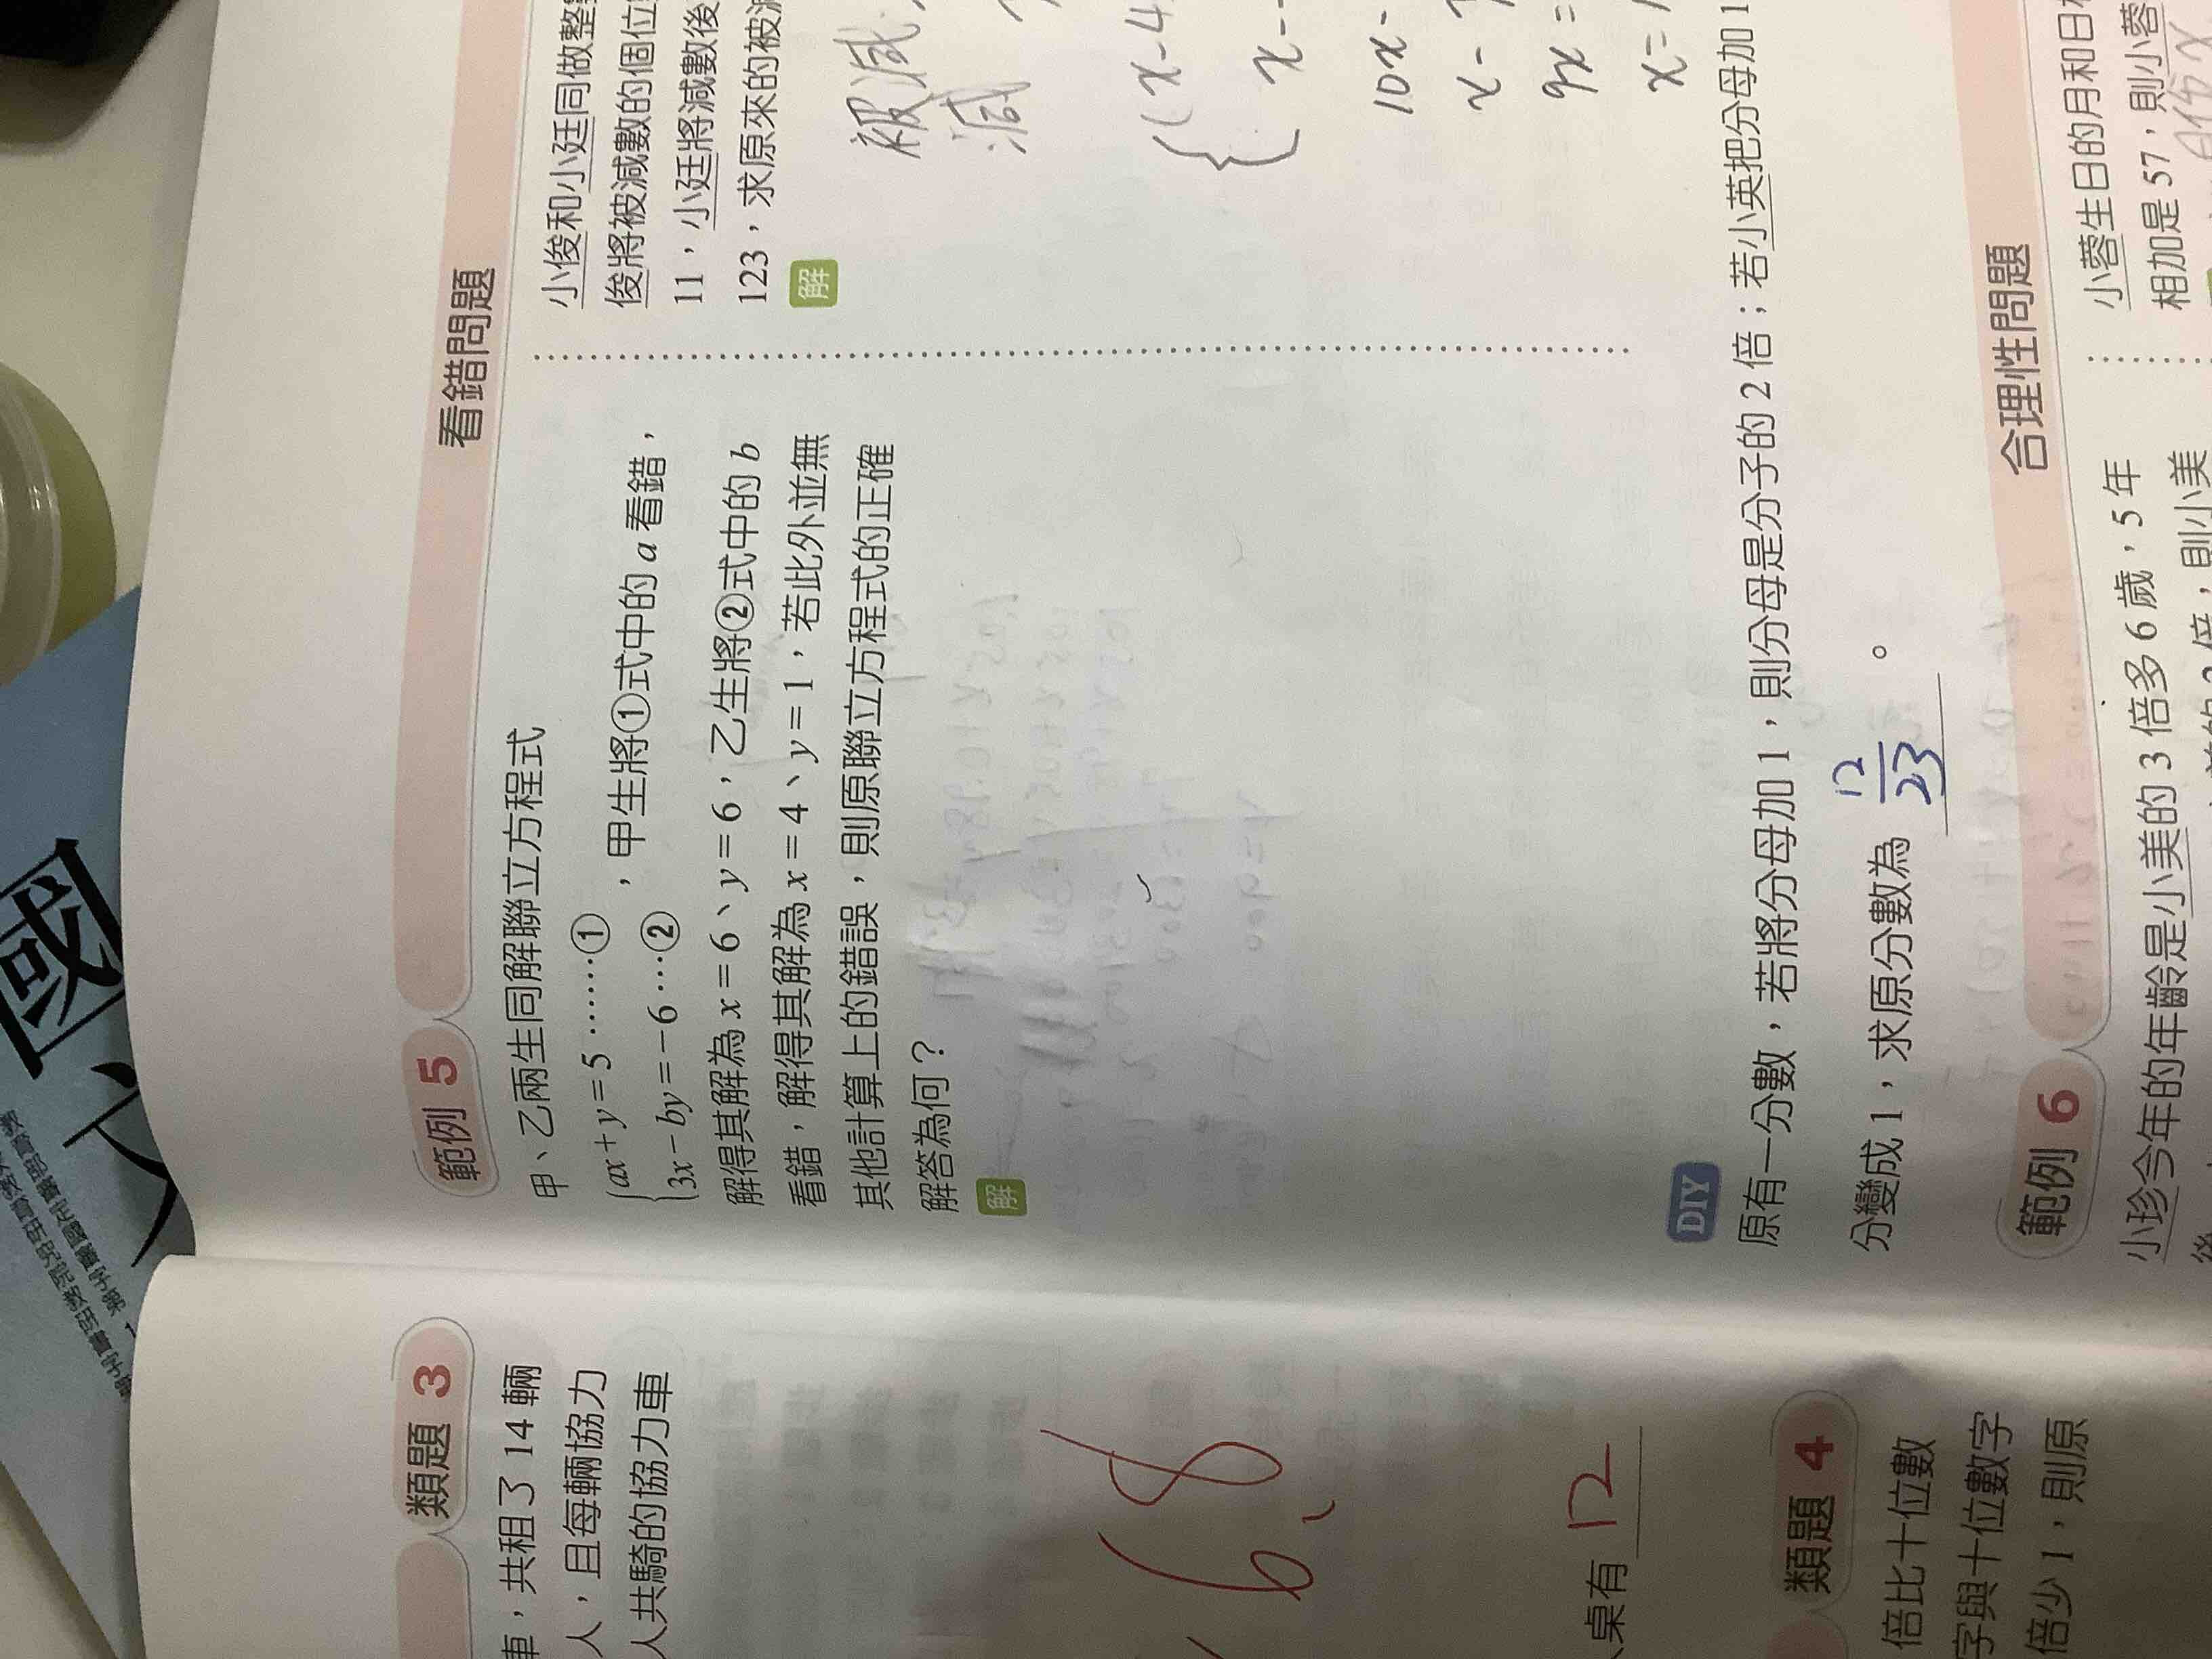 國
文
類題 3
車，共租了 14 輛
人，且每輛協力
人共騎的協力車
6、8
桌有 12
類題 4
倍比十位數
字與十位數字
倍少 1，則原
範例 5 看錯問題
甲、乙兩生同解聯立方程式
ax+y=5……①
3x-by=-6…②
，甲生將①式中的 a 看錯，
解得其解為 x=6、y=6，乙生將②式中的 b
看錯，解得其解為 x=4、y=1，若此外並無
其他計算上的錯誤，則原聯立方程式的正確
解答為何？
解
小俊和小廷同做整
俊將被減數的個位
11，小廷將減數後
123，求原來的被減
解
被減
減
x-4
x-
10x-
x-
9x=
x=
DIY
原有一分數，若將分母加 1，則分母是分子的 2 倍；若小英把分母加 1
分變成 1，求原分數為 12/23 。
範例 6 合理性問題
小珍今年的年齡是小美的 3 倍多 6 歲，5 年
倍，則小美
小蓉生日的月和日
相加是 57，則小蓉
月份x